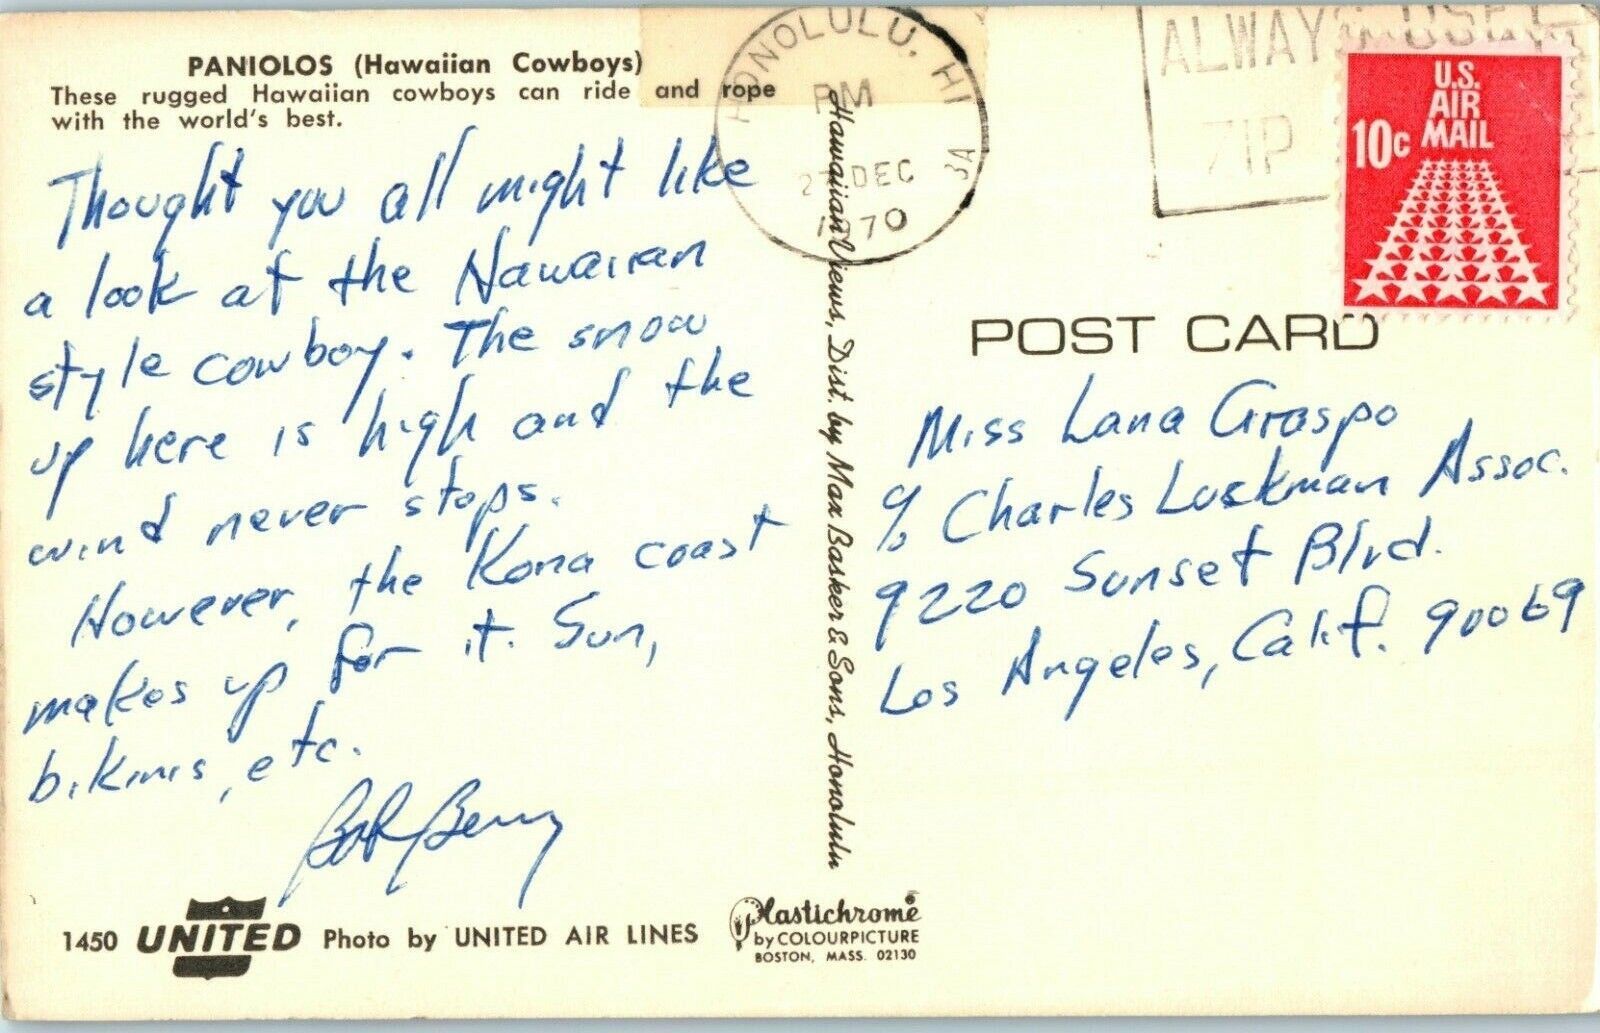 PANIOLOS (Hawaiian Cowboys)
These rugged Hawaiian cowboys can ride and rope
with the world's best.
Thought you all might like
a look at the Hawaiian
style cowboy. The snow
up here is high and the
wind never stops.
However, the Kona coast
makes up for it. Sun,
bikinis, etc.
Bob Berry
1450 UNITED Photo by UNITED AIR LINES
Hawaiian Views, Dist. by Max Basker & Sons, Honolulu
Plastichrome
by COLOURPICTURE
BOSTON, MASS. 02130
HONOLULU, HI
PM
27 DEC
1970
ALWAYS USE
ZIP
U.S.
AIR
MAIL
10c
POST CARD
Miss Lana Graspo
c/o Charles Luckman Assoc.
9220 Sunset Blvd.
Los Angeles, Calif. 90069